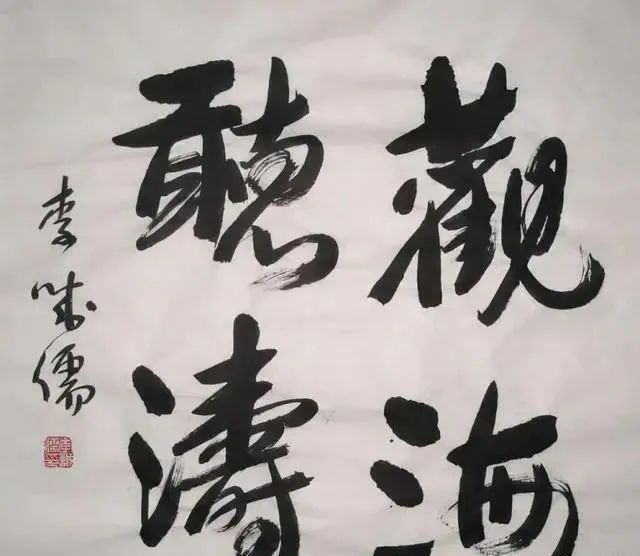 觀海
聽濤
李咸儒